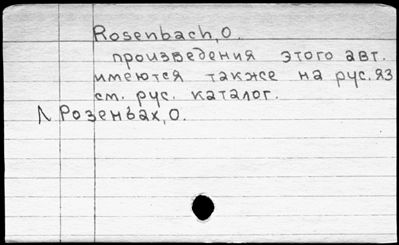 Rosenbach, O.
произведения этого авт.
имеются также на рус. яз
см. рус. каталог.
Λ Розенбах, О.